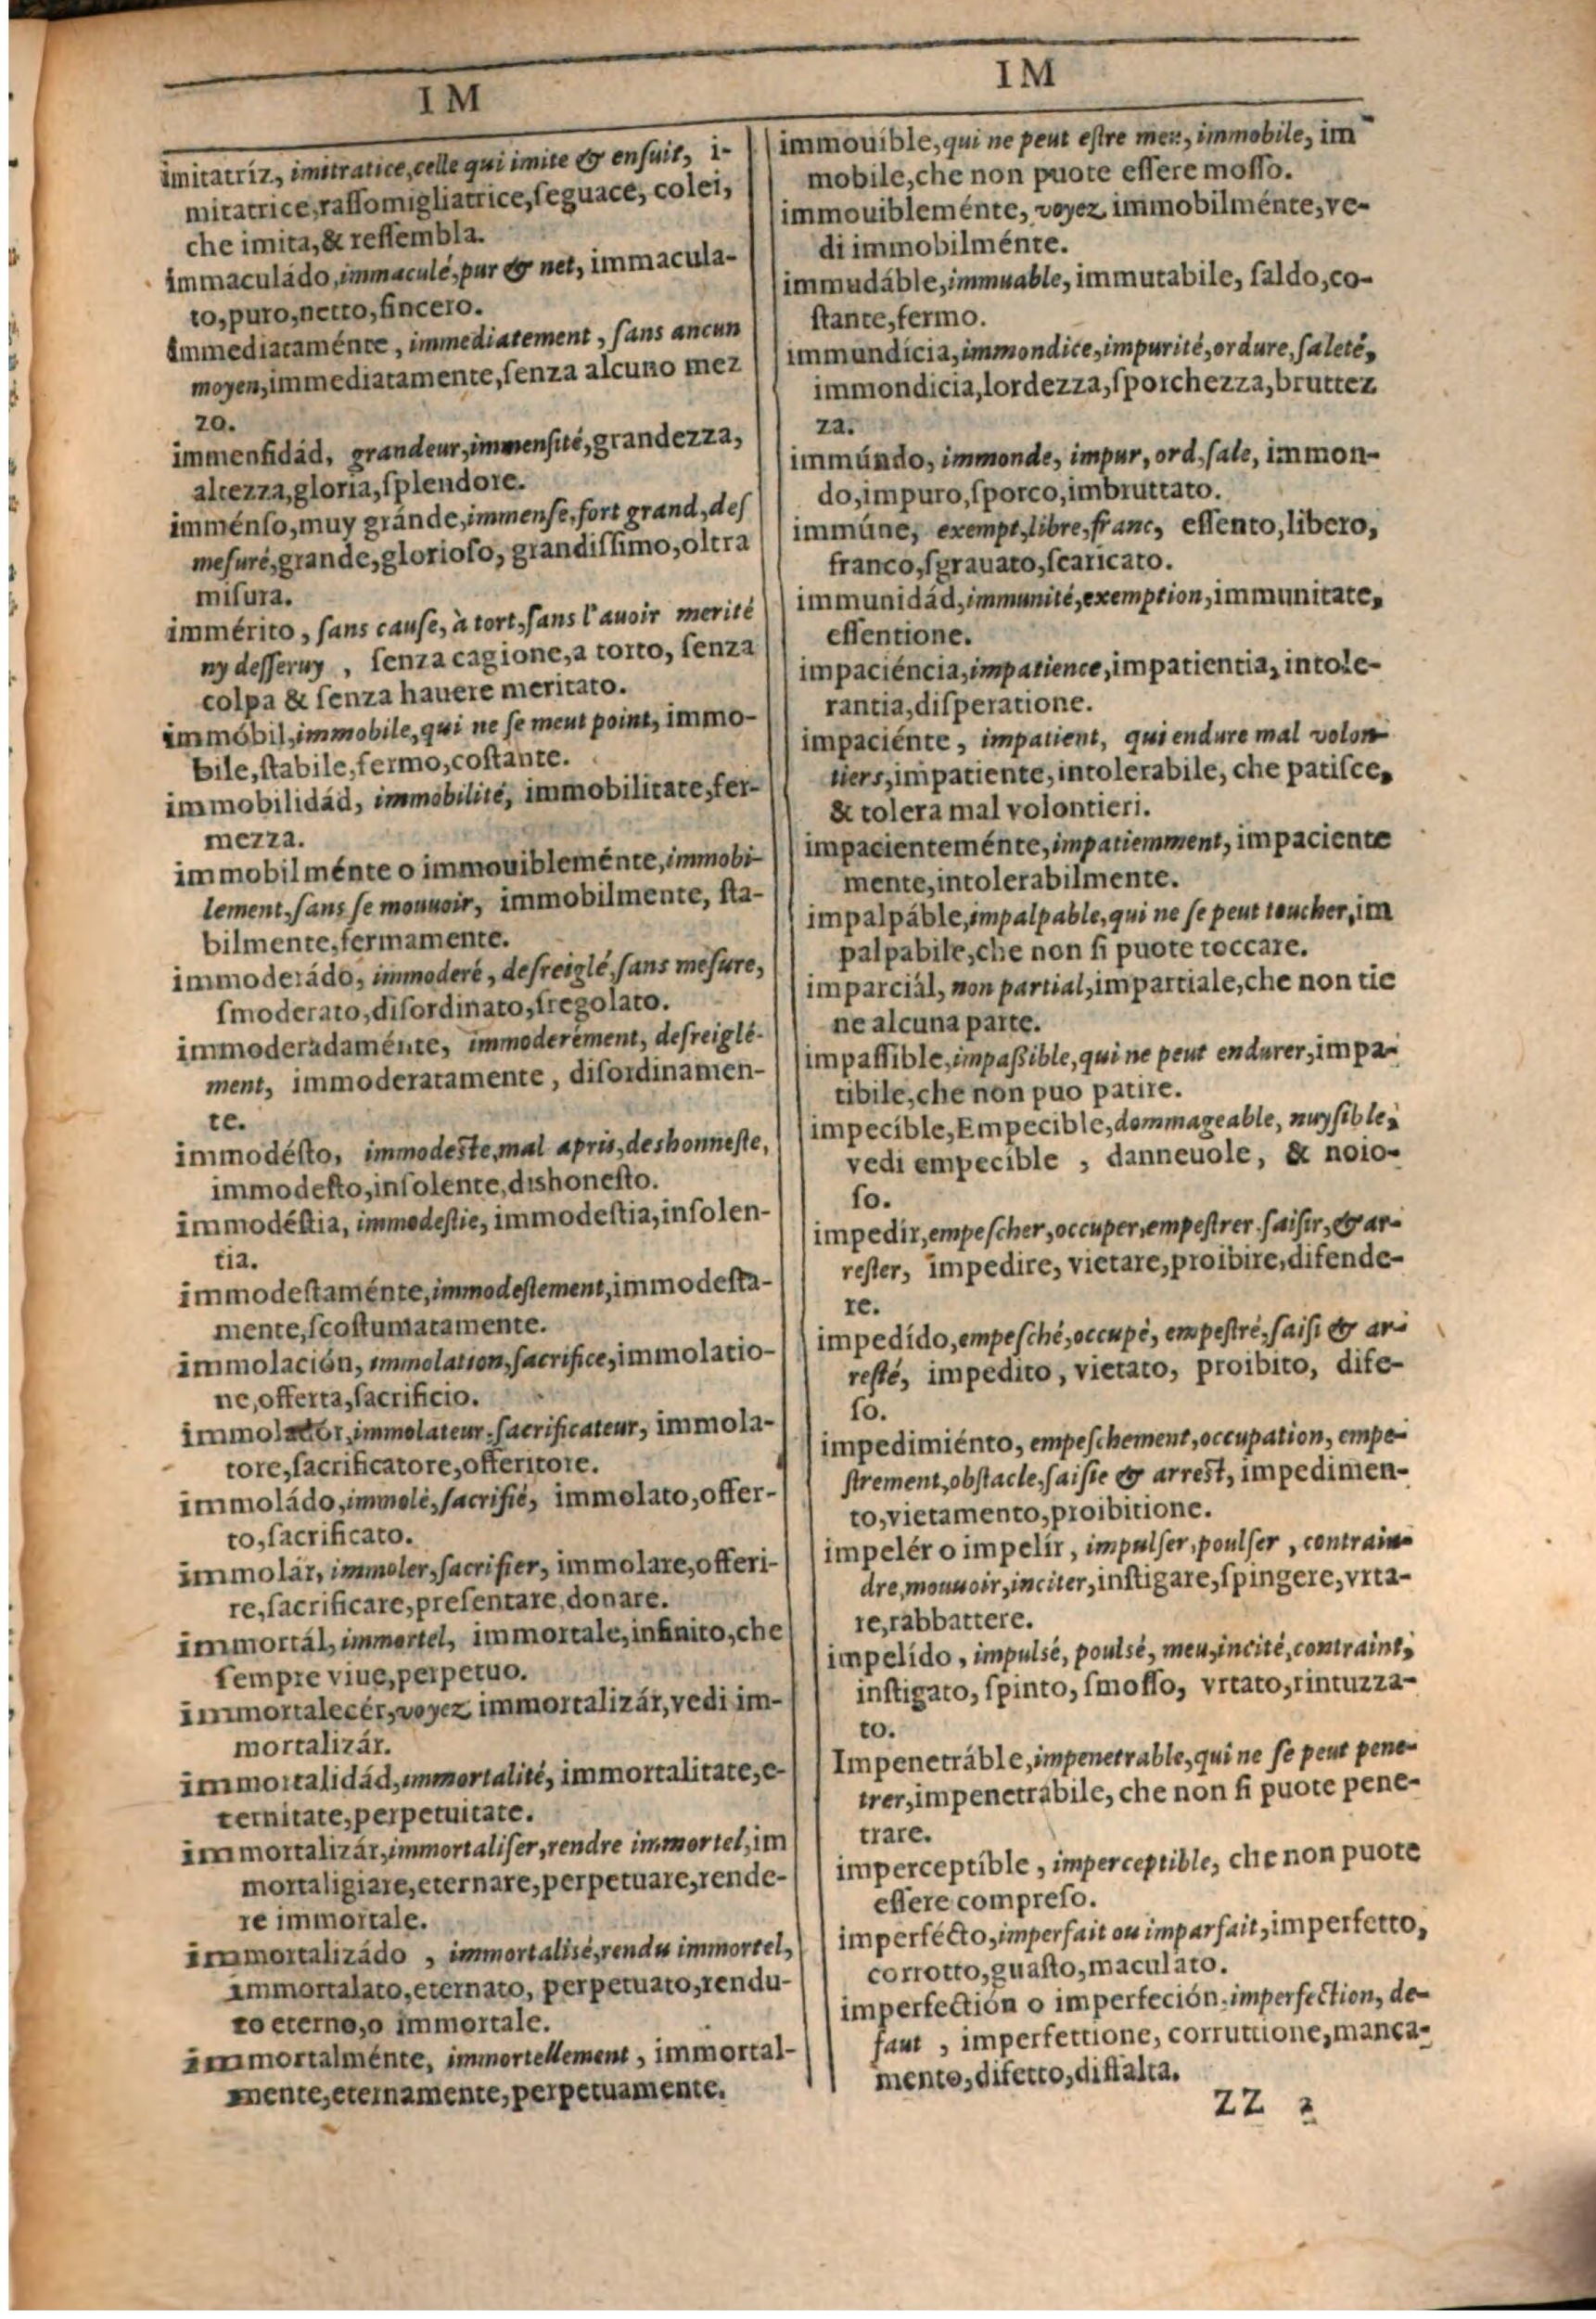 IM
imitatríz, imitratice, celle qui imite & ensuit, i-
mitatrice, raſſomigliatrice, ſeguace, colei,
che imita, & reſſembla.
immaculádo, immaculé, pur & net, immacula-
to, puro, netto, ſincero.
immediataménte, immediatement, ſans aucun
moyen, immediatamente, ſenza alcuno mez
zo.
immenſidád, grandeur, immenſité, grandezza,
altezza, gloria, ſplendore.
imménſo, muy gránde, immenſe, fort grand, deſ
meſuré, grande, glorioſo, grandiſſimo, oltra
miſura.
immérito, ſans cauſe, à tort, ſans l'auoir merité
ny deſſeruy, ſenza cagione, a torto, ſenza
colpa & ſenza hauere meritato.
immóbil, immobile, qui ne ſe meut point, immo-
bile, ſtabile, fermo, coſtante.
immobilidád, immobilité, immobilitate, fer-
mezza.
immobilménte o immouibleménte, immobi-
lement, ſans ſe mouuoir, immobilmente, ſta-
bilmente, fermamente.
immoderádo, immoderé, deſreiglé, ſans meſure,
ſmoderato, diſordinato, ſregolato.
immoderadaménte, immoderément, deſreiglé-
ment, immoderatamente, diſordinamen-
te.
immodéſto, immodeſte, mal apris, deshonneſte,
immodeſto, inſolente, dishoneſto.
immodéſtia, immodeſtie, immodeſtia, inſolen-
tia.
immodeſtaménte, immodeſtement, immodeſta-
mente, ſcoſtumatamente.
immolación, immolation, ſacrifice, immolatio-
ne, offerta, ſacrificio.
immoladór, immolateur, ſacrificateur, immola-
tore, ſacrificatore, offeritore.
immoládo, immolé, ſacrifié, immolato, offer-
to, ſacrificato.
immolár, immoler, ſacrifier, immolare, offeri-
re, ſacrificare, preſentare, donare.
immortál, immortel, immortale, infinito, che
ſempre viue, perpetuo.
immortalecér, voyez immortalizár, vedi im-
mortalizár.
immortalidád, immortalité, immortalitate, e-
ternitate, perpetuitate.
immortalizár, immortaliſer, rendre immortel, im
mortaligiare, eternare, perpetuare, rende-
re immortale.
immortalizádo, immortalisé, rendu immortel,
immortalato, eternato, perpetuato, rendu-
to eterno, o immortale.
immortalménte, immortellement, immortal-
mente, eternamente, perpetuamente.
IM
immouíble, qui ne peut eſtre meu, immobile, im
mobile, che non puote eſſere moſſo.
immouibleménte, voyez immobilménte, ve-
di immobilménte.
immudáble, immuable, immutabile, ſaldo, co-
ſtante, fermo.
immundícia, immondice, impurité, ordure, ſaleté,
immondicia, lordezza, ſporchezza, bruttez
za.
immúndo, immonde, impur, ord, ſale, immon-
do, impuro, ſporco, imbruttato.
immúne, exempt, libre, franc, eſſento, libero,
franco, ſgrauato, ſcaricato.
immunidád, immunité, exemption, immunitate,
eſſentione.
impaciéncia, impatience, impatientia, intole-
rantia, diſperatione.
impaciénte, impatient, qui endure mal volon-
tiers, impatiente, intolerabile, che patiſce,
& tolera mal volontieri.
impacienteménte, impatiemment, impaciente
mente, intolerabilmente.
impalpáble, impalpable, qui ne ſe peut toucher, im
palpabile, che non ſi puote toccare.
imparciál, non partial, impartiale, che non tie
ne alcuna parte.
impaſſible, impaßible, qui ne peut endurer, impa-
tibile, che non puo patire.
impecíble, Empecible, dommageable, nuyſible,
vedi empecíble, danneuole, & noio-
ſo.
impedír, empeſcher, occuper, empeſtrer, ſaiſir, & ar-
reſter, impedire, vietare, proibire, difende-
re.
impedído, empeſché, occupé, empeſtré, ſaiſi & ar-
reſté, impedito, vietato, proibito, dife-
ſo.
impedimiénto, empeſchement, occupation, empe-
ſtrement, obſtacle, ſaiſie & arreſt, impedimen-
to, vietamento, proibitione.
impelér o impelír, impulſer, poulſer, contrain-
dre, mouuoir, inciter, inſtigare, ſpingere, vrta-
re, rabbattere.
impelído, impulsé, poulsé, meu, incité, contraint,
inſtigato, ſpinto, ſmoſſo, vrtato, rintuzza-
to.
Impenetráble, impenetrable, qui ne ſe peut pene-
trer, impenetrabile, che non ſi puote pene-
trare.
imperceptíble, imperceptible, che non puote
eſſere compreſo.
imperfécto, imperfait ou imparfait, imperfetto,
corrotto, guaſto, maculato.
imperfectión o imperfeción, imperfection, de-
faut, imperfettione, corruttione, manca-
mento, difetto, diffalta.
ZZ 2